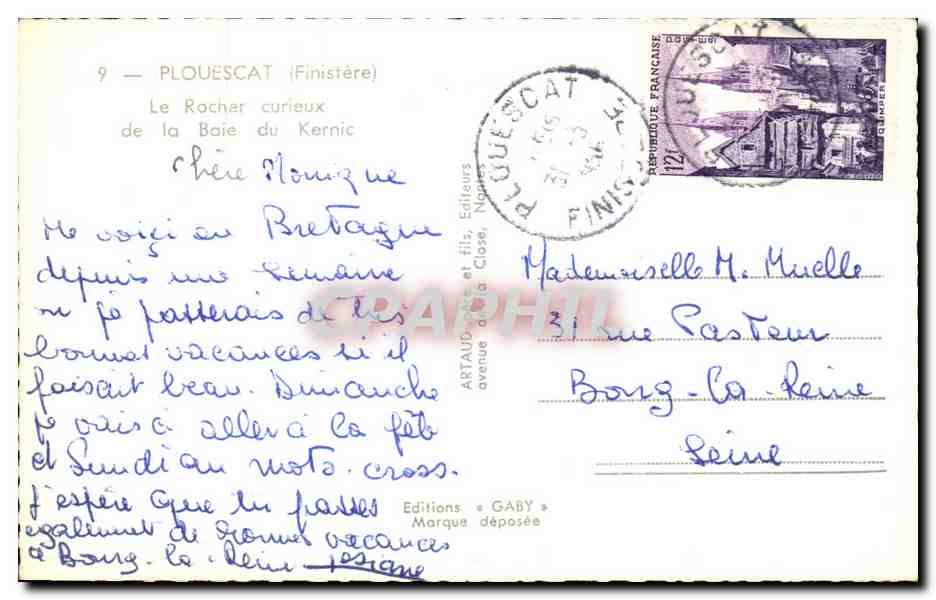 9 — PLOUESCAT (Finistère)
Le Rocher curieux
de la Baie du Kernic
Chère Monique
Me voici en Bretagne
depuis une semaine
où je passerais de très
bonnes vacances si il
faisait beau. Dimanche
je vais à aller à la fête
et Lundi au moto-cross.
J'espère que tu passes
également de bonnes vacances
à Bourg-la-Reine
Editions « GABY »
Marque déposée
ARTAUD père et fils, Editeurs
avenue de la Close, Nantes
PLOUESCAT
FINISTERE
RÉPUBLIQUE FRANÇAISE
12f
POSTES
QUIMPER
PLOUESCAT
Mademoiselle M. Muelle
31 rue Pasteur
Bourg-La-Reine
Seine
CPAPHIL